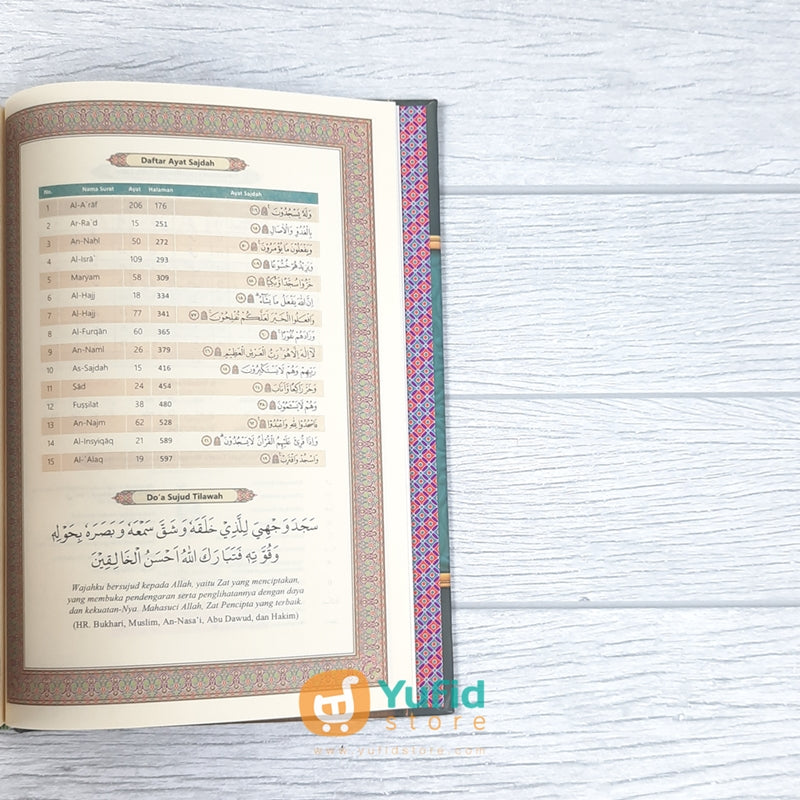 Daftar Ayat Sajdah
No. Nama Surat Ayat Halaman Ayat Sajdah
1 Al-A`rāf 206 176 وَلَهُ يَسْجُدُوْنَ ۩ ٢٠٦
2 Ar-Ra`d 15 251 بِالْغُدُوِّ وَالْاٰصَالِ ۩ ١٥
3 An-Naḥl 50 272 وَيَفْعَلُوْنَ مَا يُؤْمَرُوْنَ ۩ ٥٠
4 Al-Isrā` 109 293 وَيَزِيْدُهُمْ خُشُوْعًا ۩ ١٠٩
5 Maryam 58 309 خَرُّوْا سُجَّدًا وَّبُكِيًّا ۩ ٥٨
6 Al-Ḥajj 18 334 اِنَّ اللّٰهَ يَفْعَلُ مَا يَشَاۤءُ ۩ ١٨
7 Al-Ḥajj 77 341 وَافْعَلُوا الْخَيْرَ لَعَلَّكُمْ تُفْلِحُوْنَ ۩ ٧٧
8 Al-Furqān 60 365 وَزَادَهُمْ نُفُوْرًا ۩ ٦٠
9 An-Naml 26 379 لَآ اِلٰهَ اِلَّا هُوَ رَبُّ الْعَرْشِ الْعَظِيْمِ ۩ ٢٦
10 As-Sajdah 15 416 رَبِّهِمْ وَهُمْ لَا يَسْتَكْبِرُوْنَ ۩ ١٥
11 Ṣād 24 454 وَخَرَّ رَاكِعًا وَّاَنَابَ ۩ ٢٤
12 Fuṣṣilat 38 480 وَهُمْ لَا يَسْـَٔمُوْنَ ۩ ٣٨
13 An-Najm 62 528 فَاسْجُدُوْا لِلّٰهِ وَاعْبُدُوْا ۩ ٦٢
14 Al-Insyiqāq 21 589 وَاِذَا قُرِئَ عَلَيْهِمُ الْقُرْاٰنُ لَا يَسْجُدُوْنَ ۩ ٢١
15 Al-`Alaq 19 597 وَاسْجُدْ وَاقْتَرِبْ ۩ ١٩
Do'a Sujud Tilawah
سَجَدَ وَجْهِيَ لِلَّذِيْ خَلَقَهُ وَشَقَّ سَمْعَهُ وَبَصَرَهُ بِحَوْلِهِ
وَقُوَّتِهِ فَتَبَارَكَ اللّٰهُ اَحْسَنُ الْخَالِقِيْنَ
Wajahku bersujud kepada Allah, yaitu Zat yang menciptakan,
yang membuka pendengaran serta penglihatannya dengan daya
dan kekuatan-Nya. Mahasuci Allah, Zat Pencipta yang terbaik.
(HR. Bukhari, Muslim, An-Nasa'i, Abu Dawud, dan Hakim)
Yufid
store
www.yufidstore.com